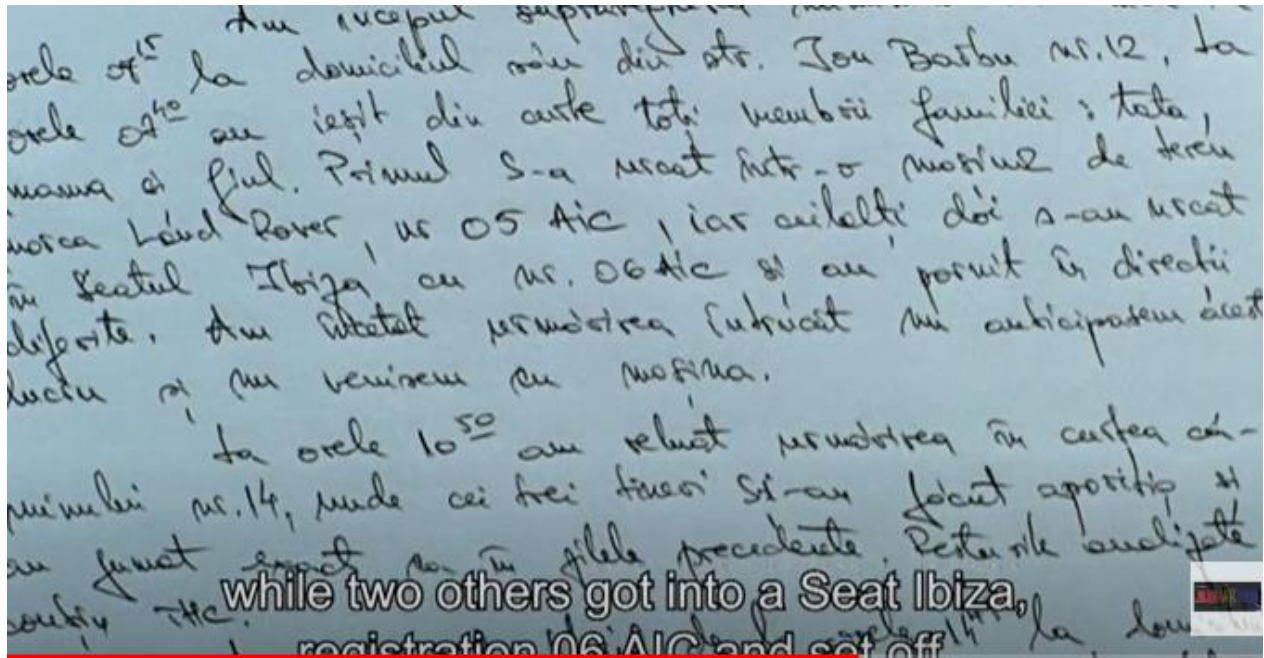 Am început supravegherea
orele 07 15 la domiciliul său din str. Ion Barbu nr. 12. La
orele 07 40 au ieșit din curte toți membrii familiei: tata,
mama și fiul. Primul s-a urcat într-o mașină de teren
marca Land Rover, nr 05 AIC, iar ceilalți doi s-au urcat
în Seatul Ibiza cu nr. 06 AIC și au pornit în direcții
diferite. Am încetat urmărirea întrucât nu anticipasem acest
lucru și nu venisem cu mașina.
La orele 10 50 am reluat urmărirea în curtea că-
minului nr. 14, unde cei trei tineri și-au făcut apariția și
au fumat exact ca în zilele precedente. Resturile analizate
conțin THC.
while two others got into a Seat Ibiza,
registration 06 AIC and set off
la